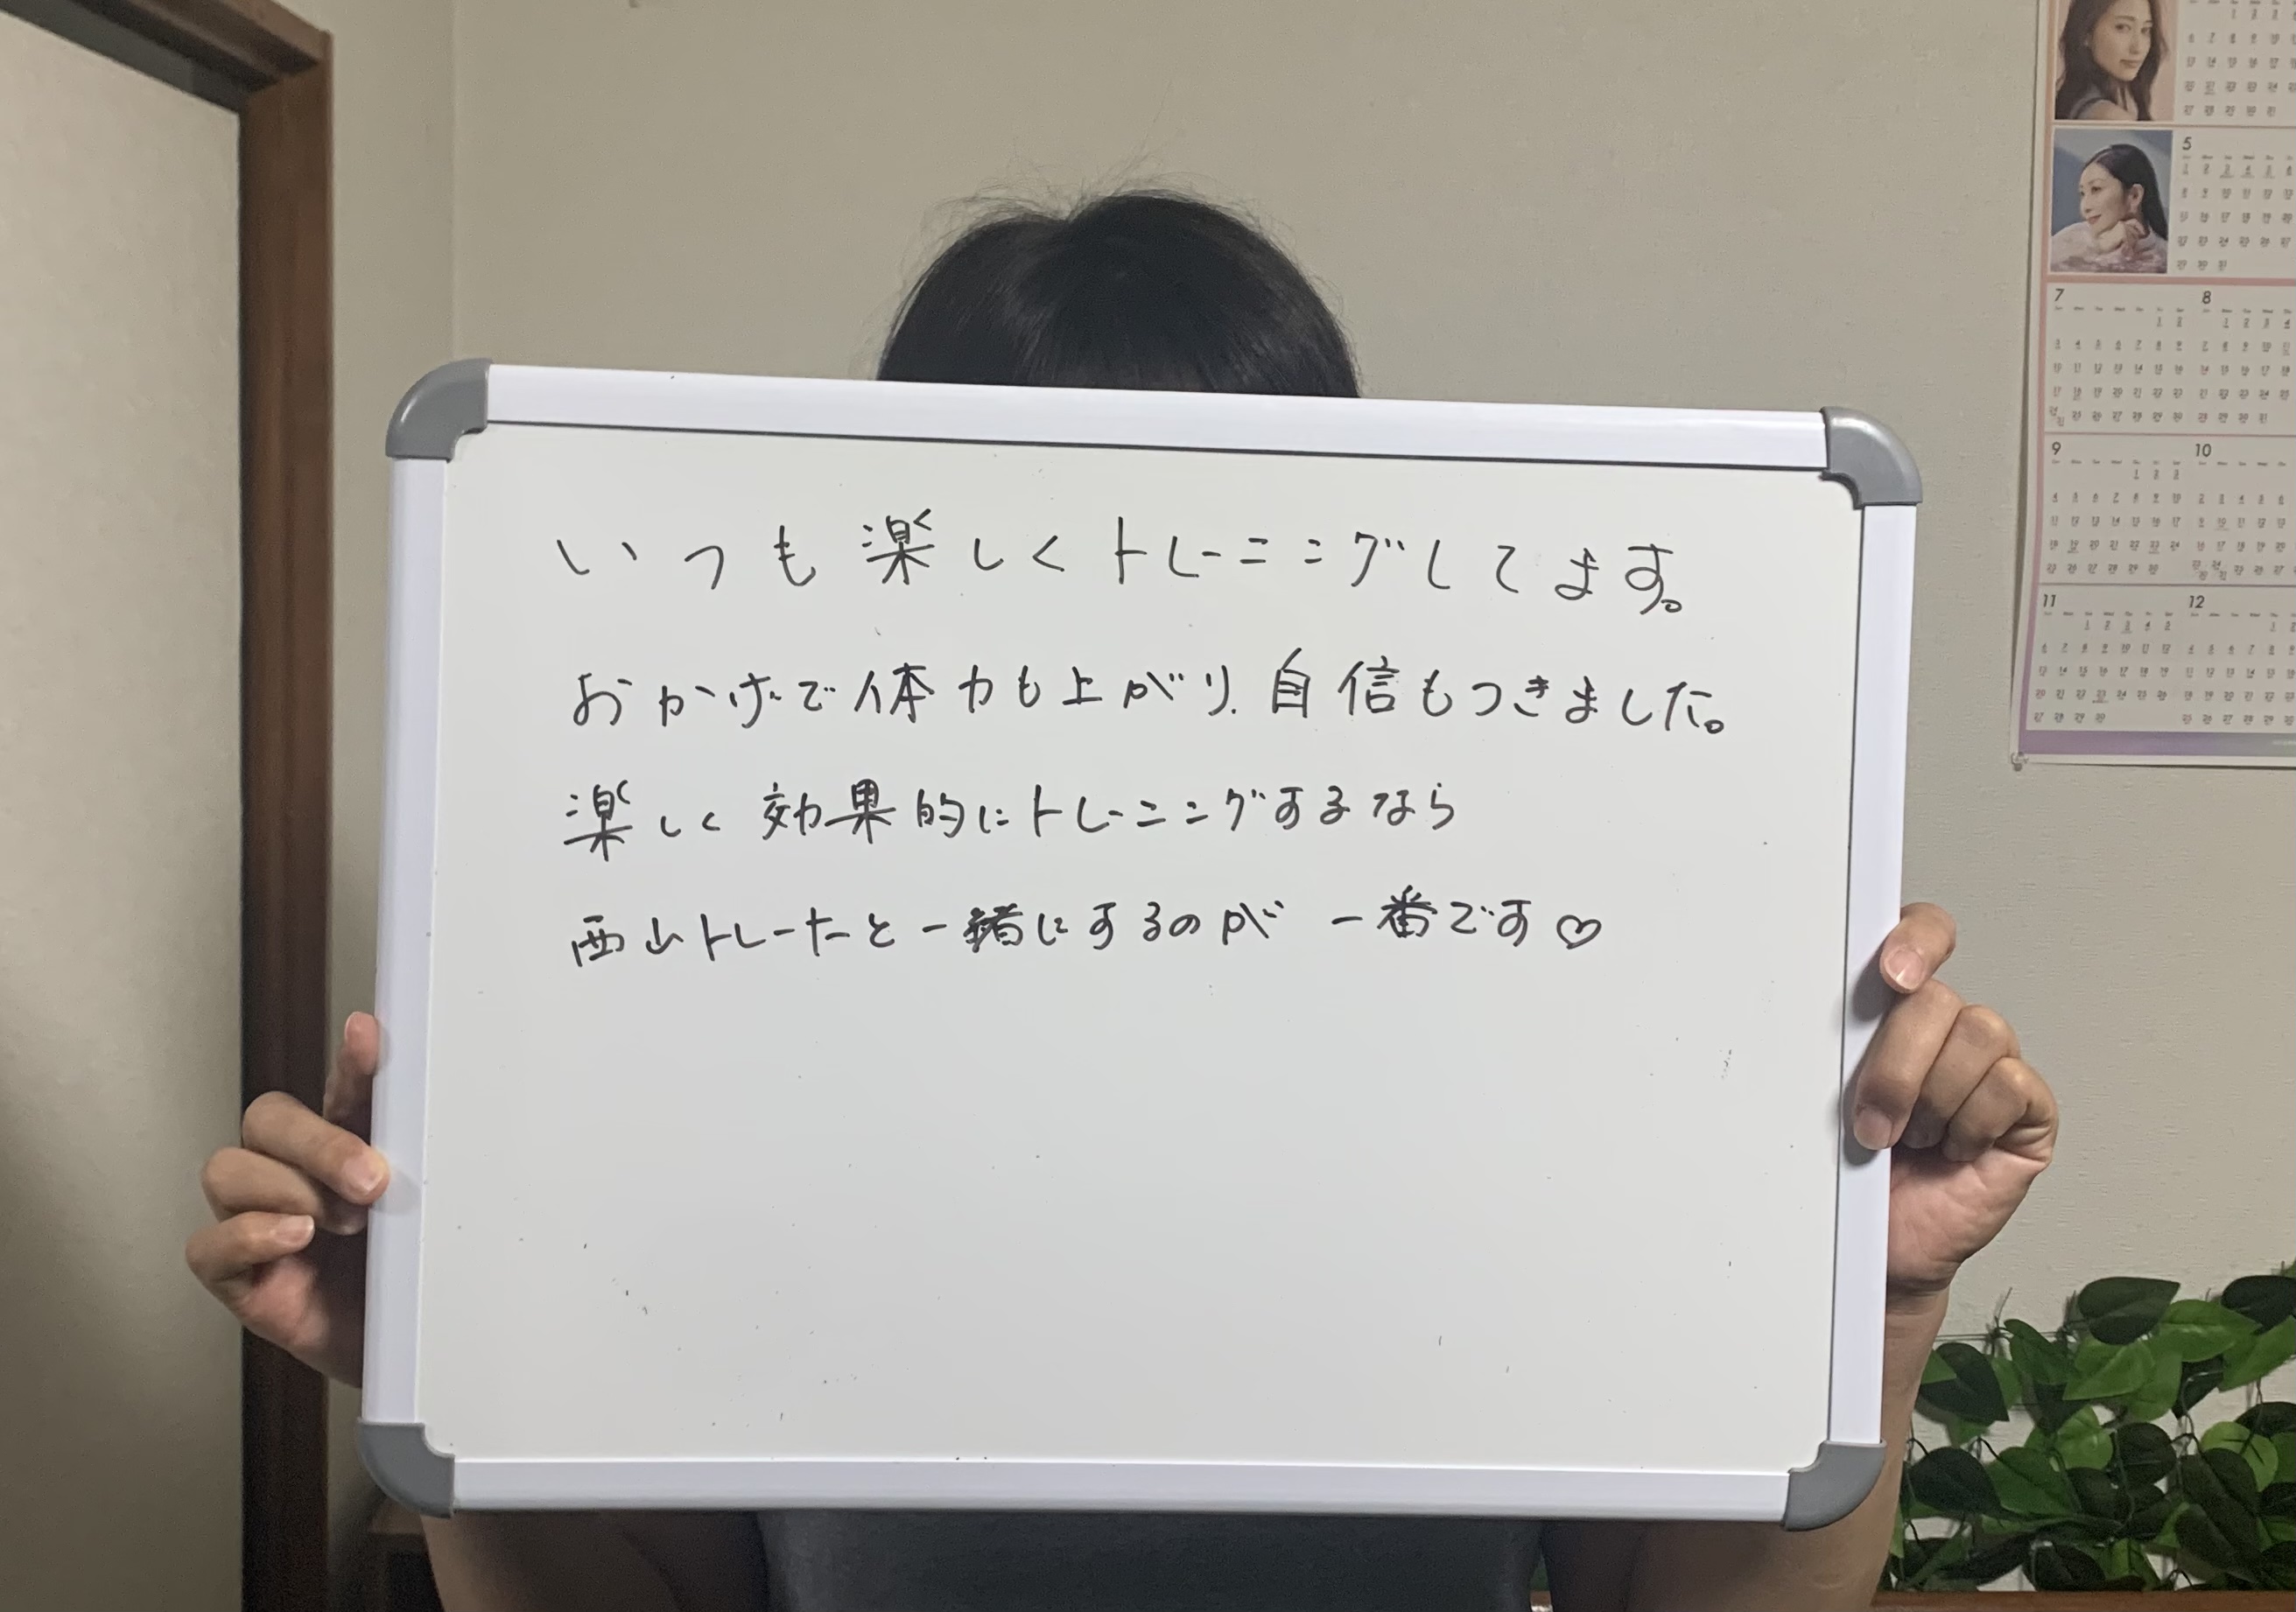 いつも楽しくトレーニングしてます。
おかげで体力も上がり、自信もつきました。
楽しく効果的にトレーニングするなら
西山トレーナーと一緒にするのが一番です♡
5
7 8
9 10
11 12